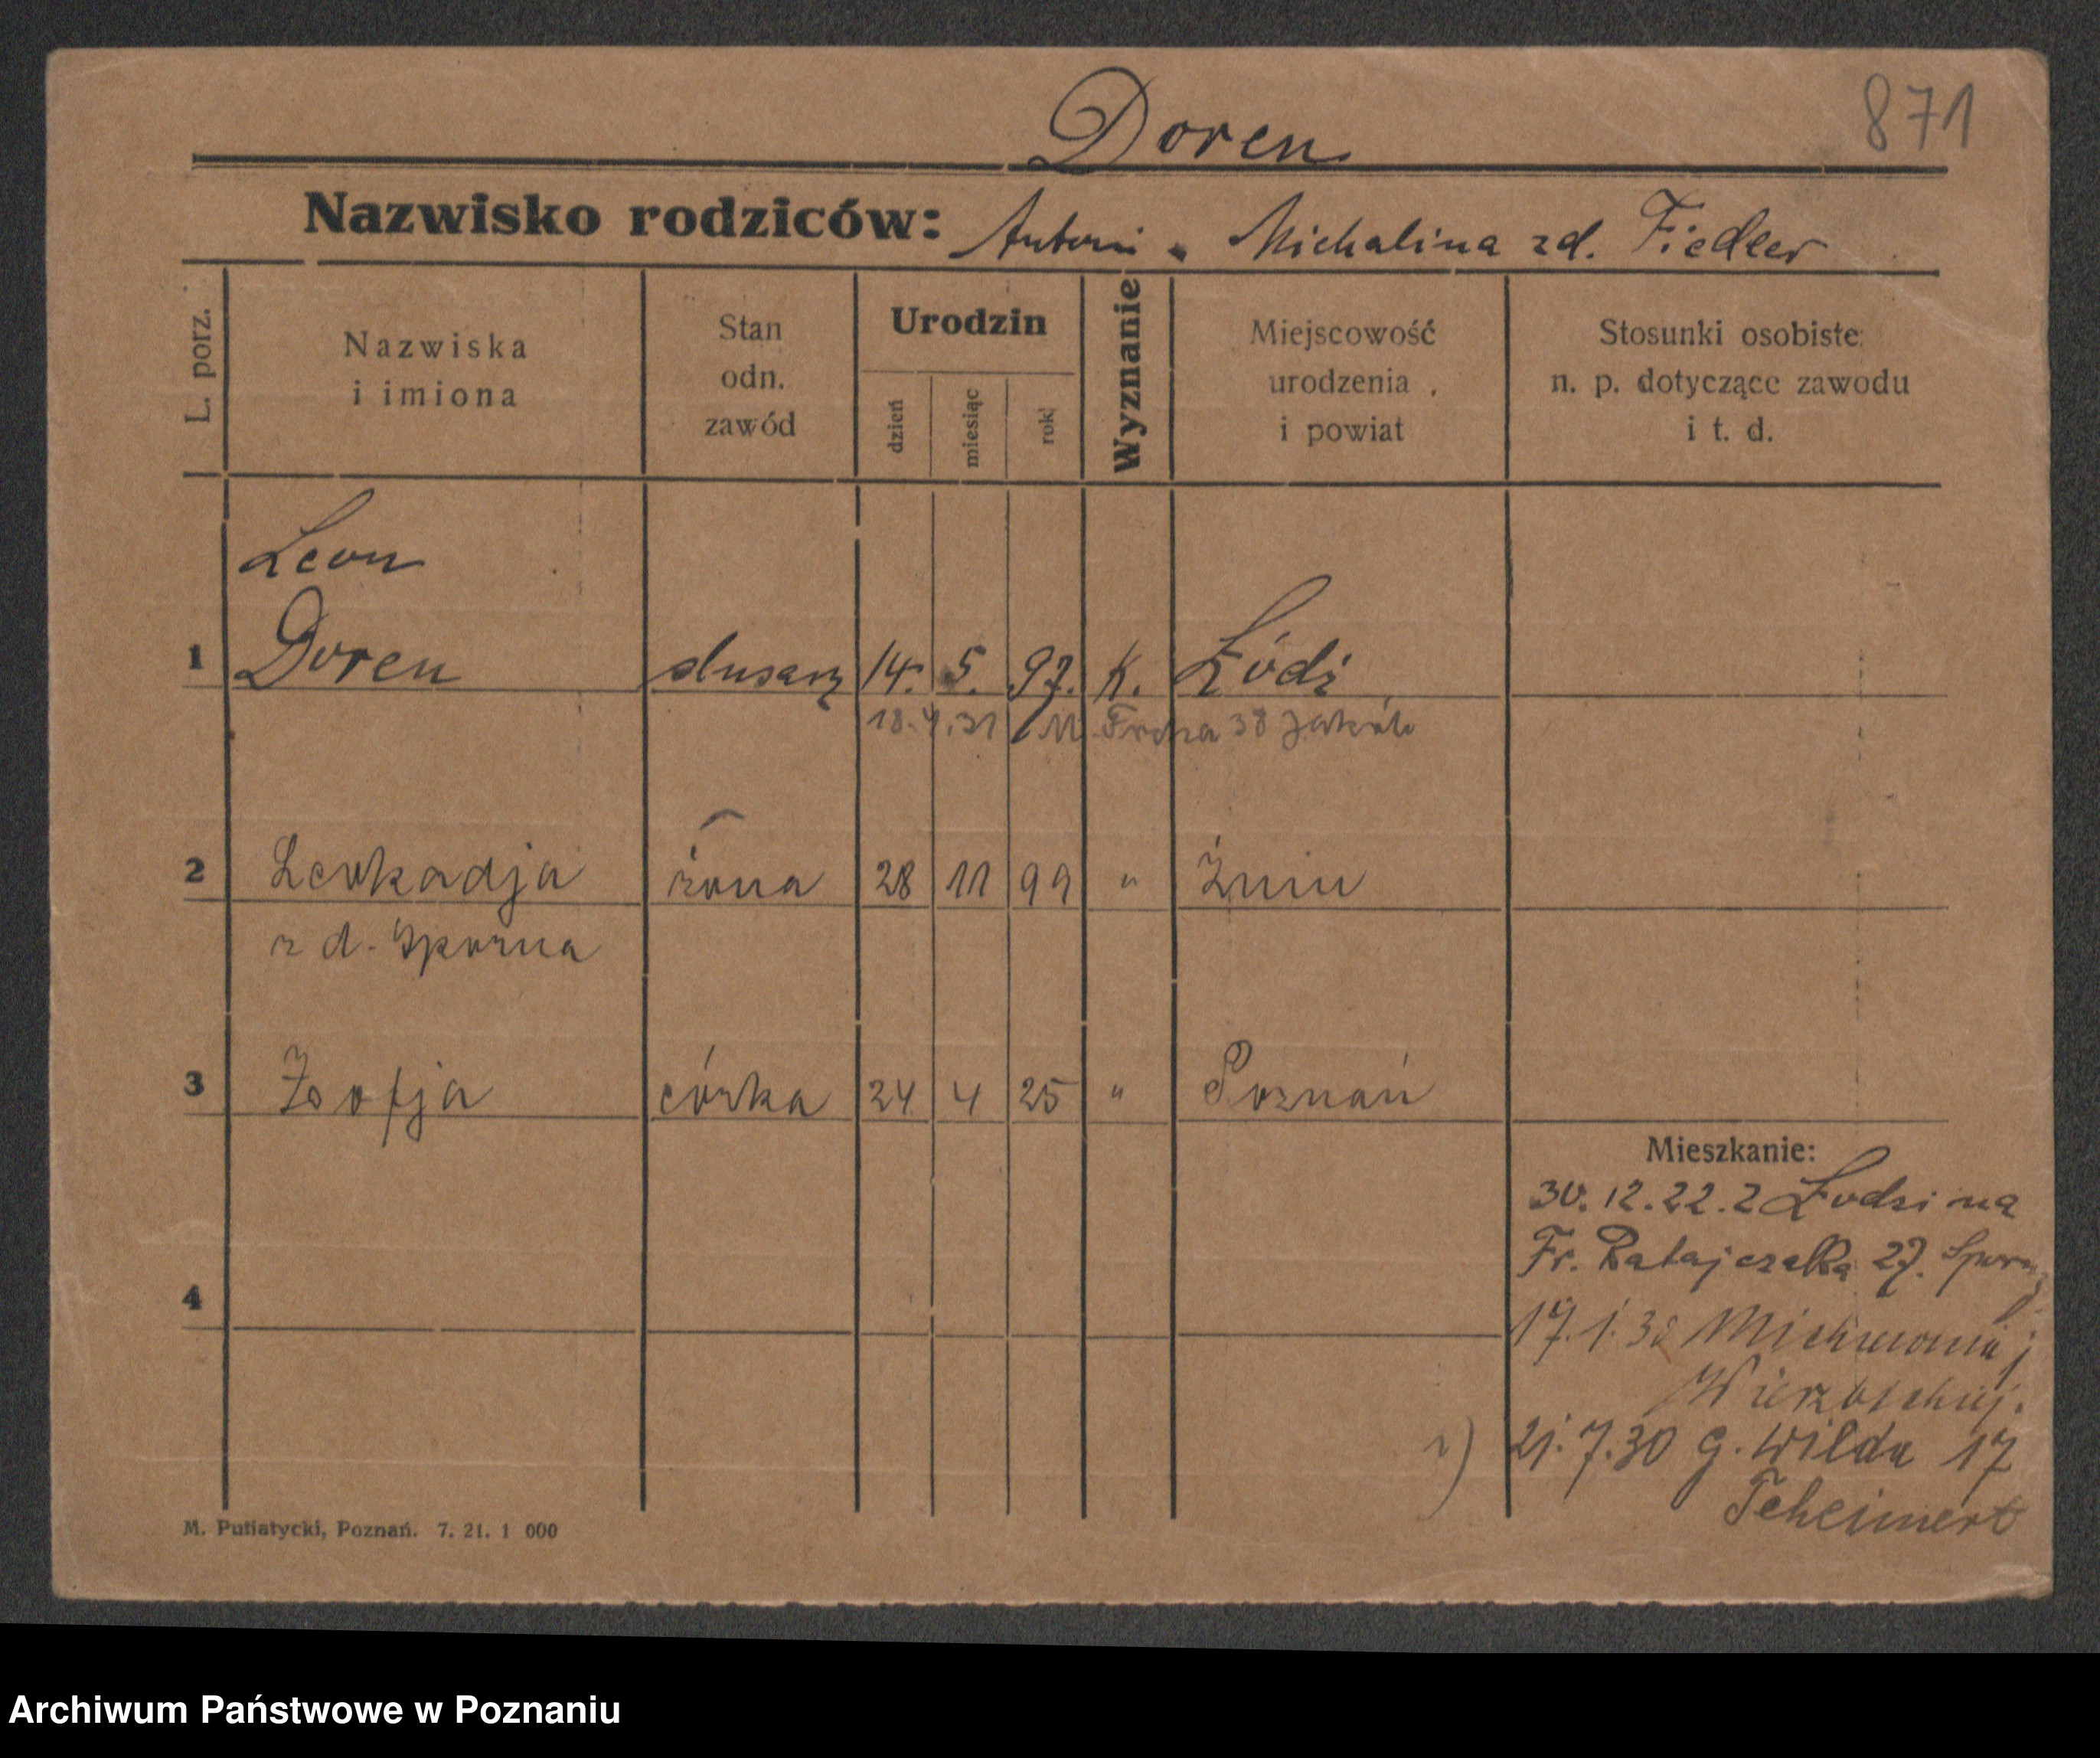 Doren
871
Nazwisko rodziców: Antoni. Michalina zd. Fiedler
L. porz.
Nazwiska
i imiona
Stan
odn.
zawód
Urodzin
dzień
miesiąc
rok
Wyznanie
Miejscowość
urodzenia
i powiat
Stosunki osobiste
n. p. dotyczące zawodu
i t. d.
Leon
1 Doren ślusarz 14. 5. 97. K. Łódź
18.4.31 M. Focha 38
2 Leokadja żona 28 11 99 " Żnin
z d. Sporna
3 Zofja córka 24 4 25 " Poznań
Mieszkanie:
30.12.22. z Łodzi na
Fr. Ratajczaka 27.
4
17.1.30
21.7.30 G. Wilda 17
M. Putiatycki, Poznań. 7. 21. 1 000
Archiwum Państwowe w Poznaniu